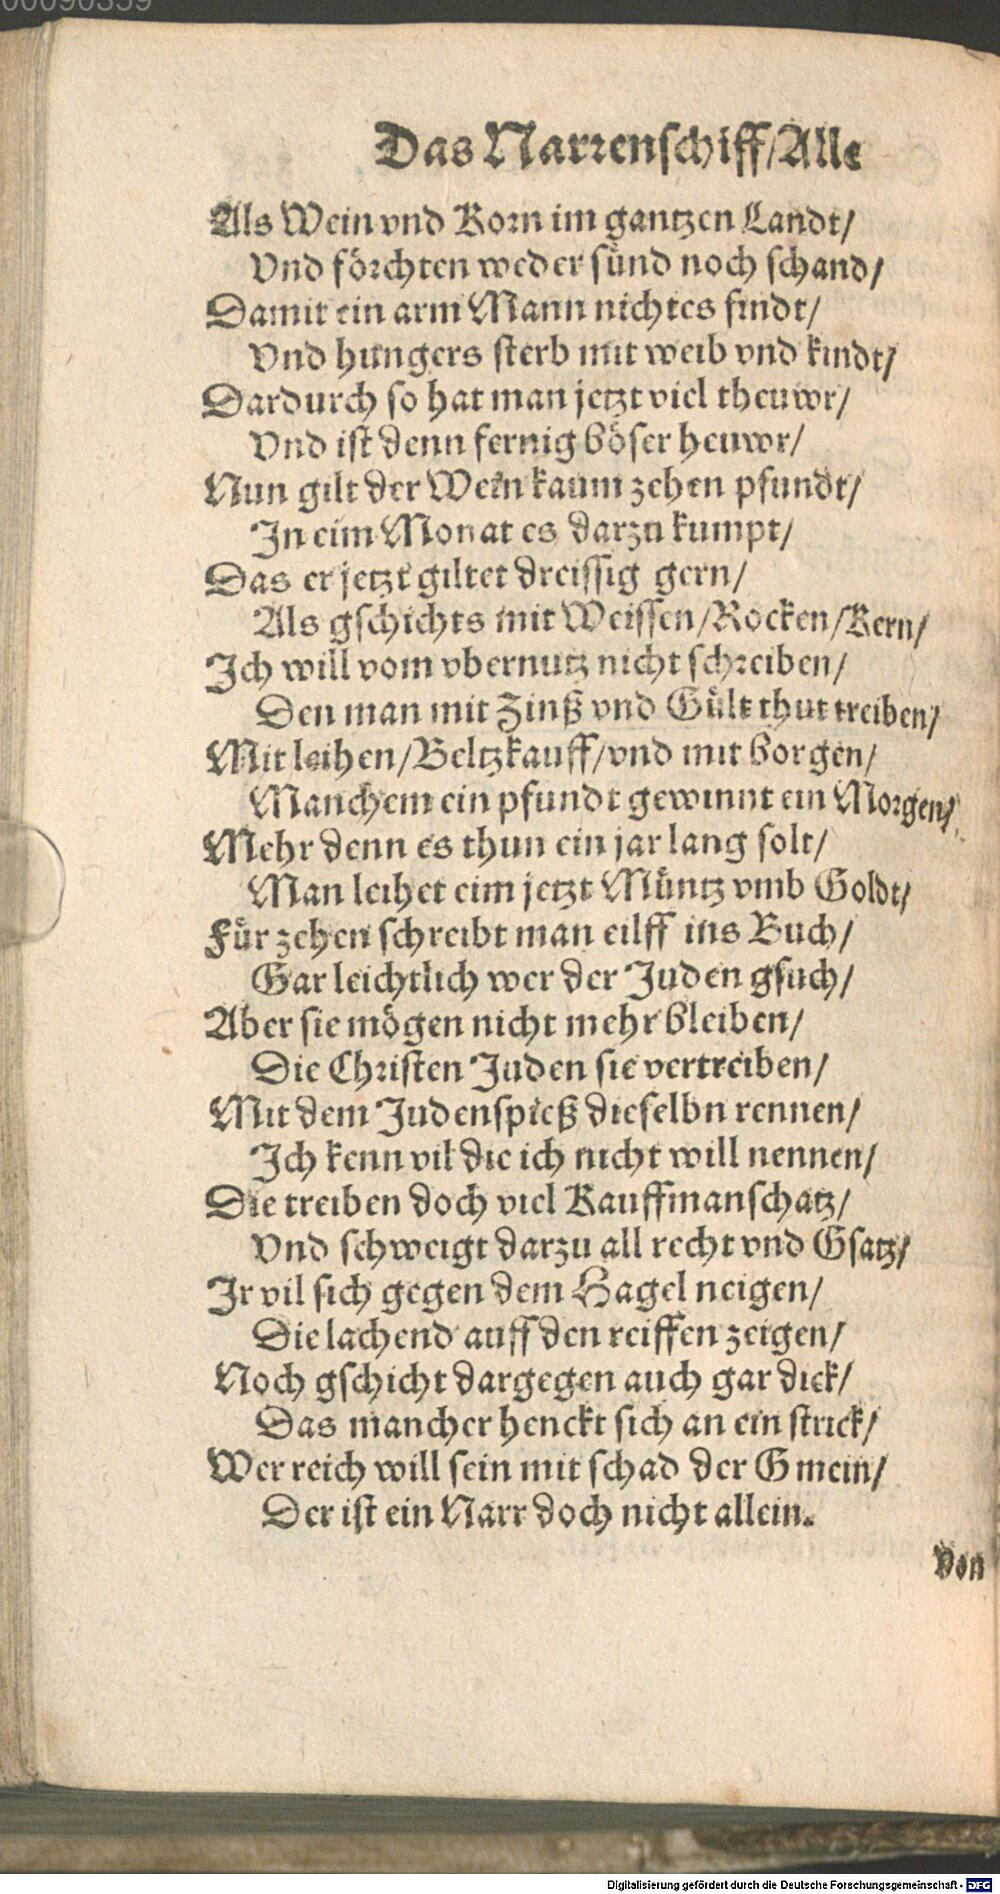 00090359
Das Narrenschiff/Alle
Als Wein vnd Korn im gantzen Landt/
Vnd förchten weder sünd noch schand/
Damit ein arm Mann nichtes findt/
Vnd hungers sterb mit weib vnd kindt/
Dardurch so hat man jetzt viel theuwr/
Vnd ist denn fernig böser heuwr/
Nun gilt der Wein kaum zehen pfundt/
In eim Monat es darzu kumpt/
Das er jetzt giltet dreissig gern/
Als gschichts mit Weissen/Rocken/Kern/
Ich will vom vbernutz nicht schreiben/
Den man mit Zinß vnd Gült thut treiben/
Mit leihen/Beltzkauff/vnd mit borgen/
Manchem ein pfundt gewinnt ein Morgen/
Mehr denn es thun ein jar lang solt/
Man leihet eim jetzt Müntz vmb Goldt/
Für zehen schreibt man eilff ins Buch/
Gar leichtlich wer der Juden gsuch/
Aber sie mögen nicht mehr bleiben/
Die Christen Juden sie vertreiben/
Mit dem Judenspieß dieselbn rennen/
Ich kenn vil die ich nicht will nennen/
Die treiben doch viel Kauffmanschatz/
Vnd schweigt darzu all recht vnd Gsatz/
Ir vil sich gegen dem Hagel neigen/
Die lachend auff den reiffen zeigen/
Noch gschicht dargegen auch gar dick/
Das mancher henckt sich an ein strick/
Wer reich will sein mit schad der Gmein/
Der ist ein Narr doch nicht allein.
Von
Digitalisierung gefördert durch die Deutsche Forschungsgemeinschaft - DFG